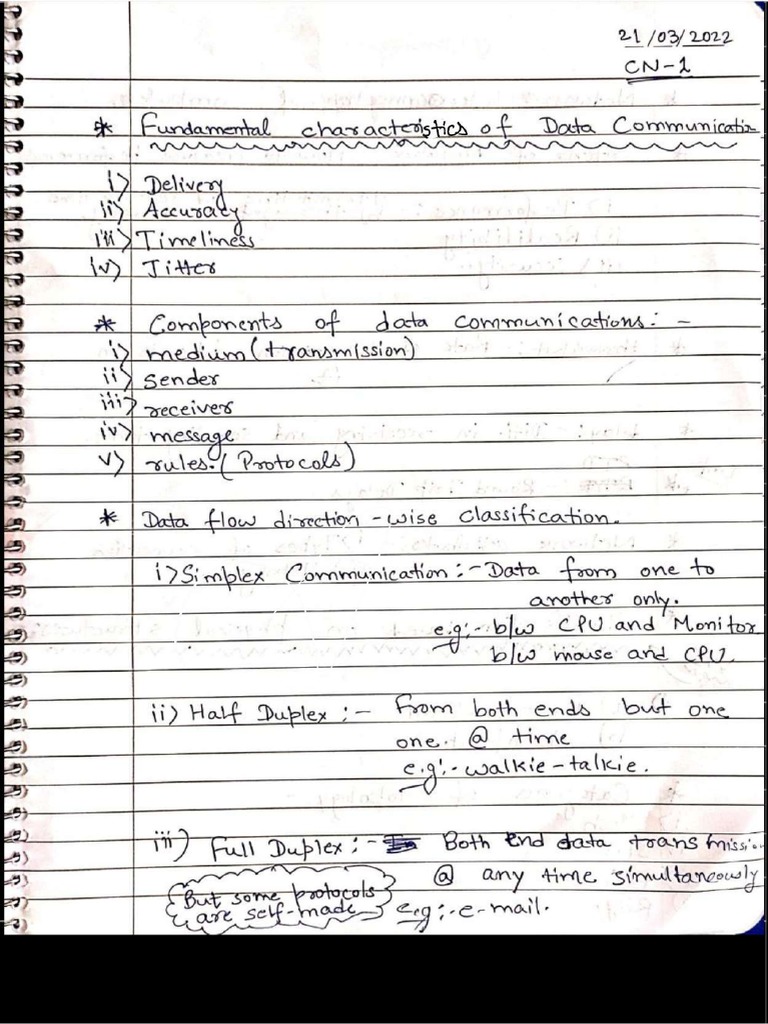 21/03/2022
CN-1
* Fundamental characteristics of Data Communication
i) Delivery
ii) Accuracy
iii) Timeliness
iv) Jitter
* Components of data communications:-
i) medium (transmission)
ii) sender
iii) receiver
iv) message
v) rules. (Protocols)
* Data flow direction-wise classification.
i) Simplex Communication:- Data from one to
another only.
e.g:- b/w CPU and Monitor
b/w mouse and CPU.
ii) Half Duplex:- From both ends but one
one. @ time
e.g:- walkie-talkie.
iii) Full Duplex:- Both end data transmission
@ any time simultaneously
But some protocols
are self-made
e.g:- e-mail.